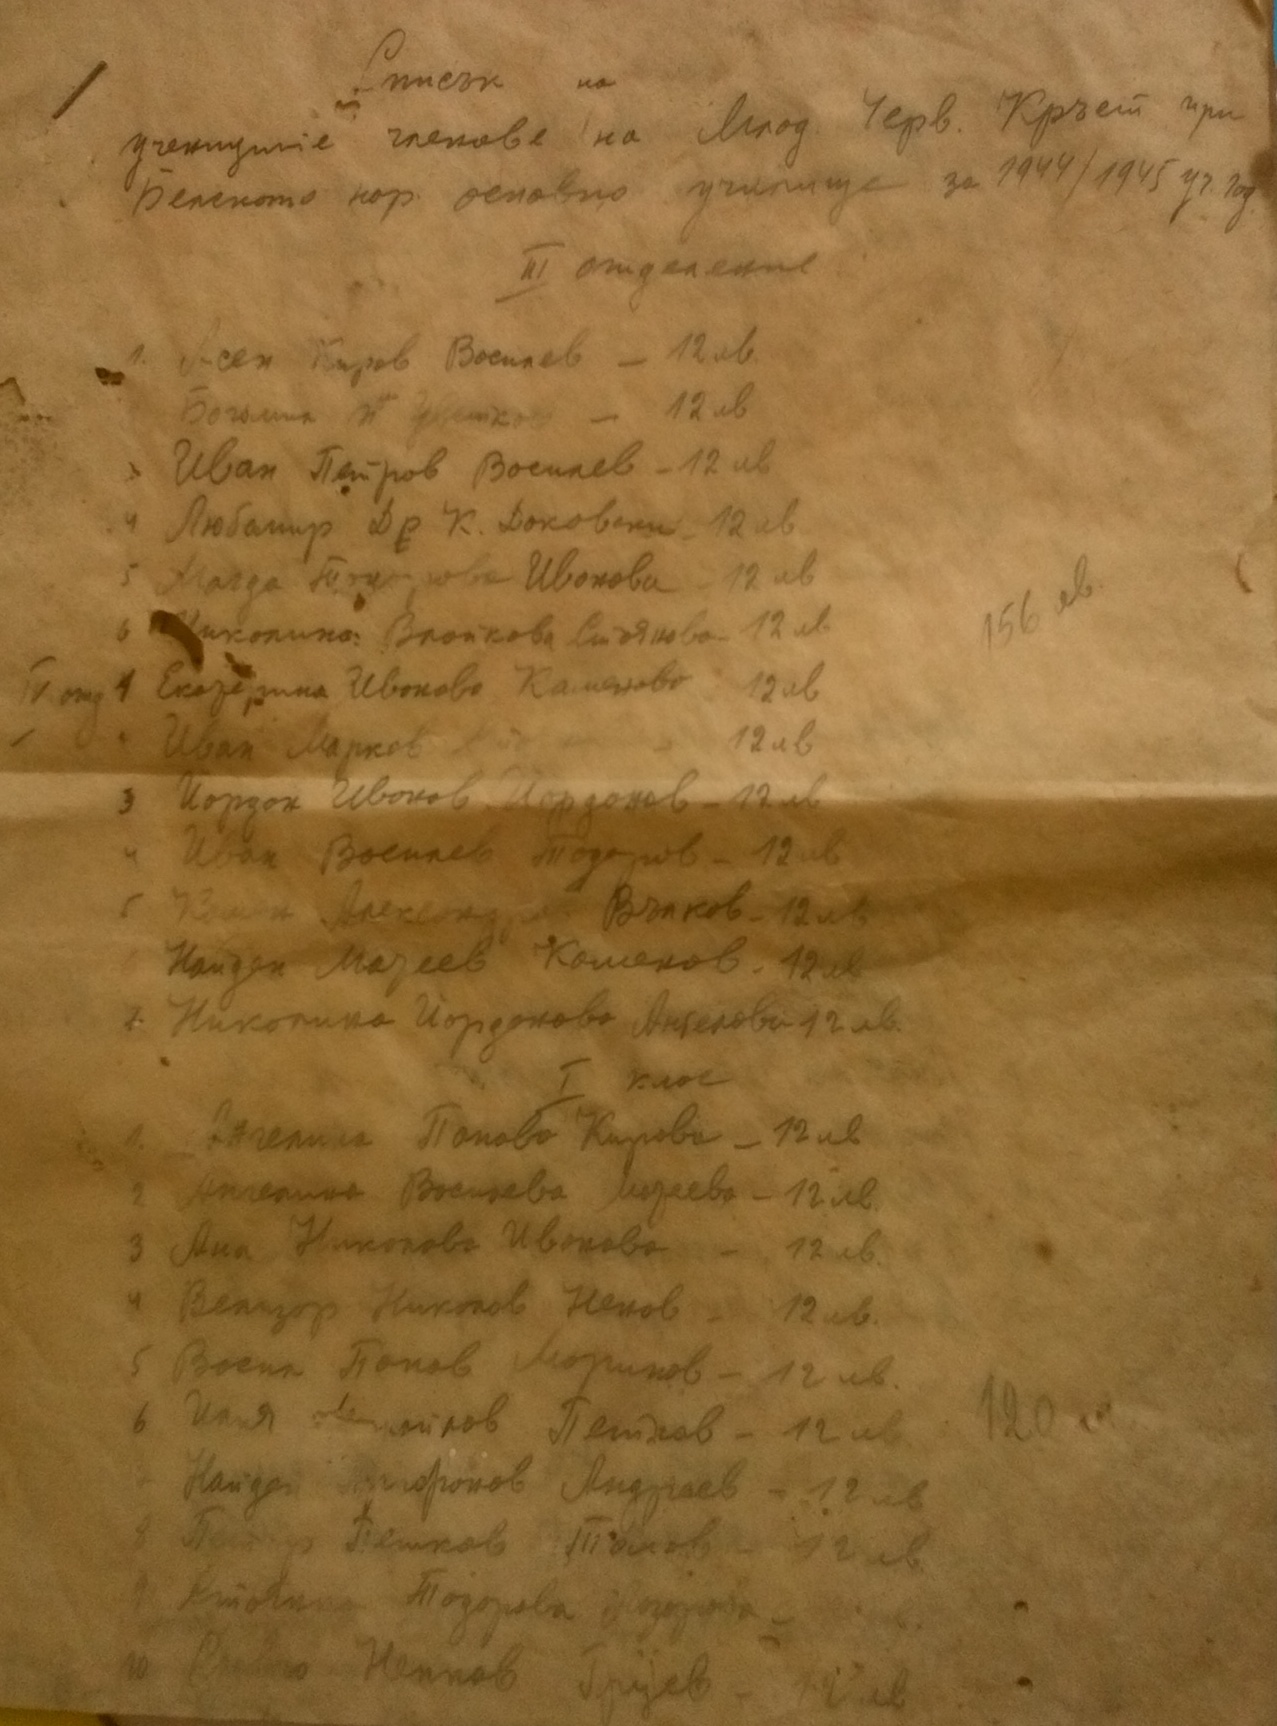 Списък на
учениците членове на Млад. Черв. Кръст при
Белското нар. основно училище за 1944/1945 уч. год.
III отделение
1. Асен Киров Василев – 12 лв.
– 12 лв
3 Иван Петров Василев – 12 лв
4 Любомир К. Доковски – 12 лв
5 Магда Иванова – 12 лв
156 лв.
6 Николина Влайкова Стоянова – 12 лв
отд 1 Екатерина Иванова Каменова 12 лв
Иван Марков 12 лв
3 Йордан Иванов Йорданов – 12 лв
4 Иван Василев Тодоров – 12 лв
5 Вълков – 12 лв
Найден Матеев Каменов – 12 лв
7 Николина Йорданова Ангелова 12 лв.
I клас
1. Ангелина Панова Кирова – 12 лв
2 Ангелина Василева Матеева – 12 лв.
3 Ана Николова Иванова – 12 лв.
4 Велизар Николов Ненов – 12 лв.
5 Васил Панов Маринов – 12 лв.
6 Илия Петков – 12 лв
120 лв
Найден Андреев – 12 лв
8 Петков – 12 лв
9 Тодорова –
10 Ненков – 12 лв